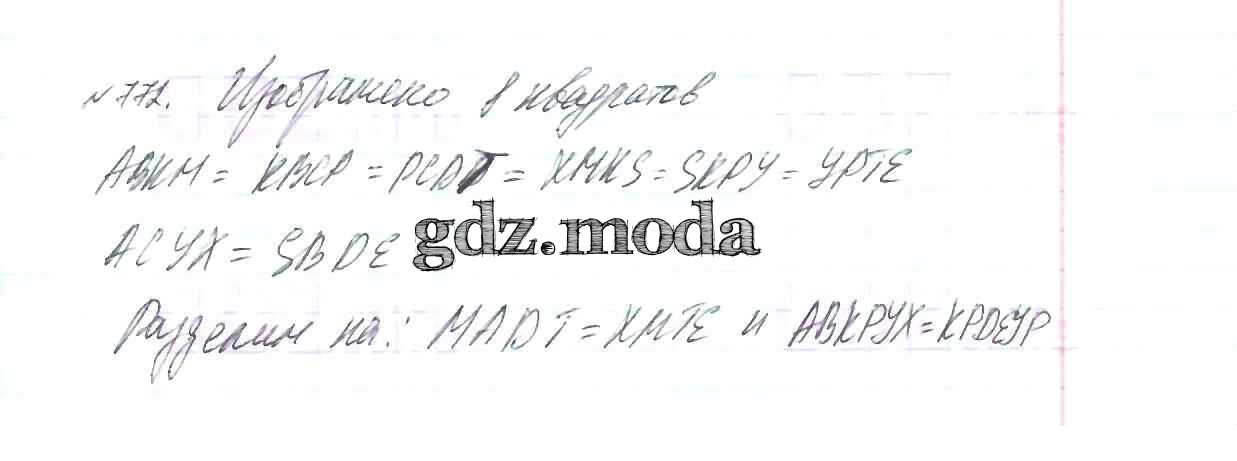 №772. Изображено 8 квадратов
ABKM = KBCP = PCDT = XMKS = SKPY = YPTE
ACYX = SBDE
gdz.moda
Разделим на: MADT = XMTE и ABKPYX = KPDEYP